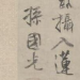 攝入蓮
探國光